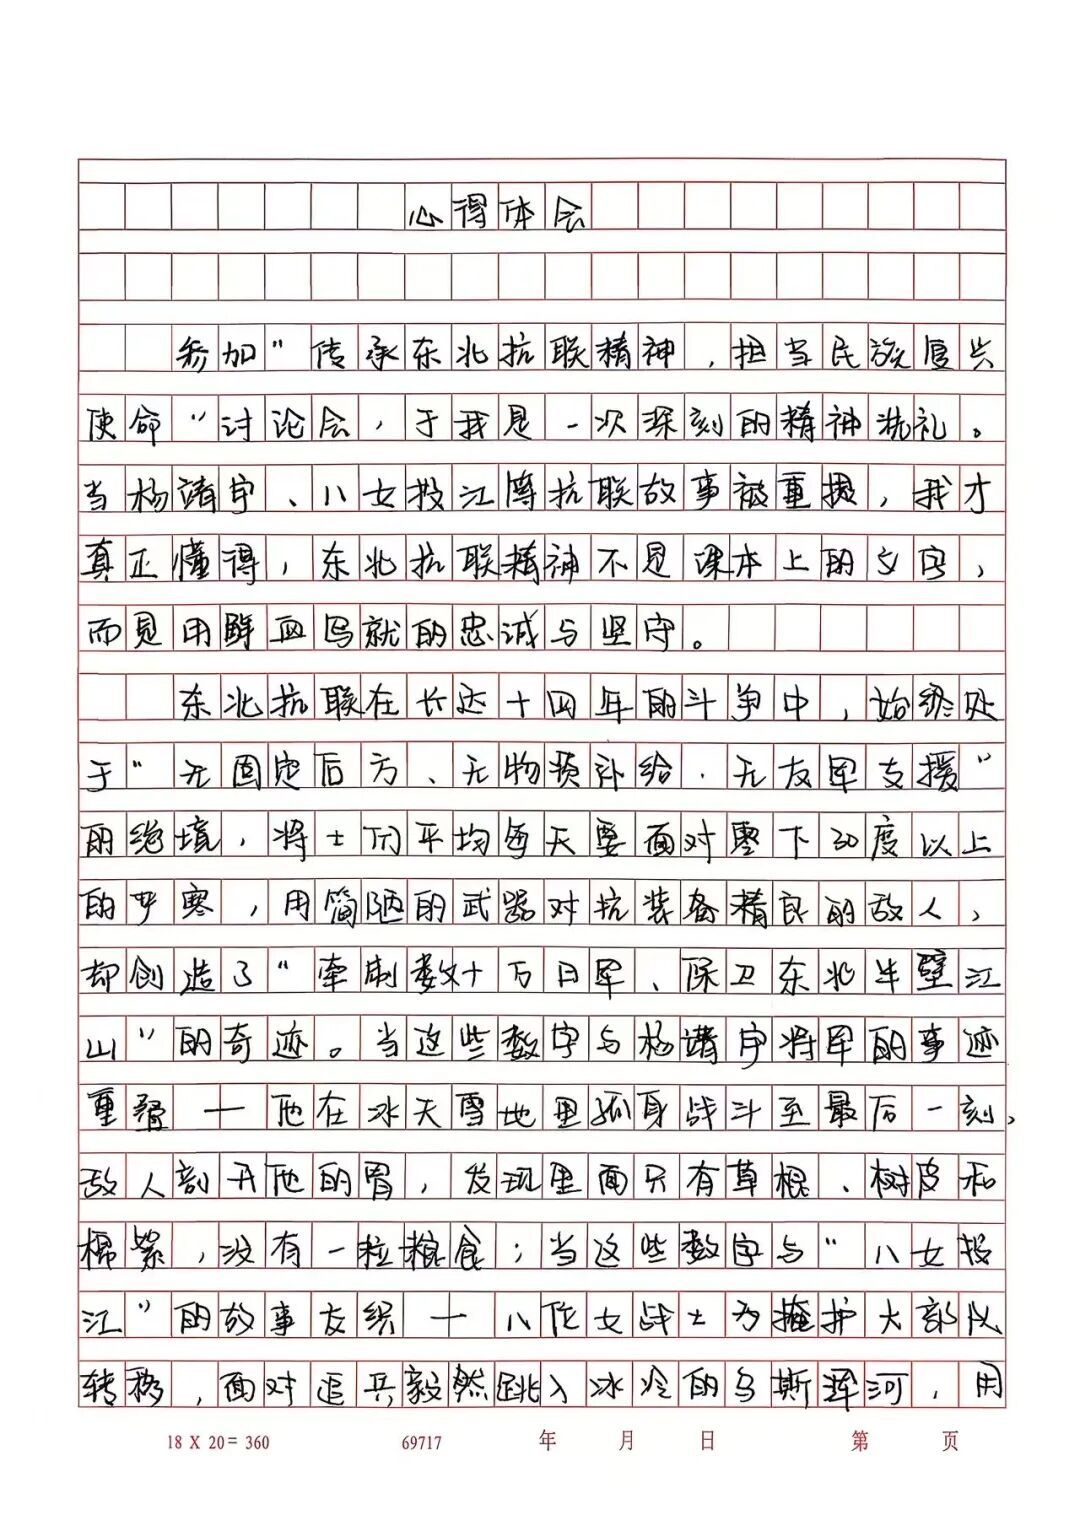 心得体会
参加“传承东北抗联精神，担当民族复兴
使命“讨论会，于我是一次深刻的精神洗礼。
当杨靖宇、八女投江等抗联故事被重提，我才
真正懂得，东北抗联精神不是课本上的文字，
而是用鲜血写就的忠诚与坚守。
东北抗联在长达十四年的斗争中，始终处
于“无固定后方、无物资补给、无友军支援”
的绝境，将士们平均每天要面对零下30度以上
的严寒，用简陋的武器对抗装备精良的敌人，
却创造了“牵制数十万日军、保卫东北半壁江
山”的奇迹。当这些数字与杨靖宇将军的事迹
重叠——他在冰天雪地里孤身战斗至最后一刻，
敌人剖开他的胃，发现里面只有草根、树皮和
棉絮，没有一粒粮食；当这些数字与“八女投
江”的故事交织——八位女战士为掩护大部队
转移，面对追兵毅然跳入冰冷的乌斯浑河，用
18 X 20 = 360 69717 年 月 日 第 页